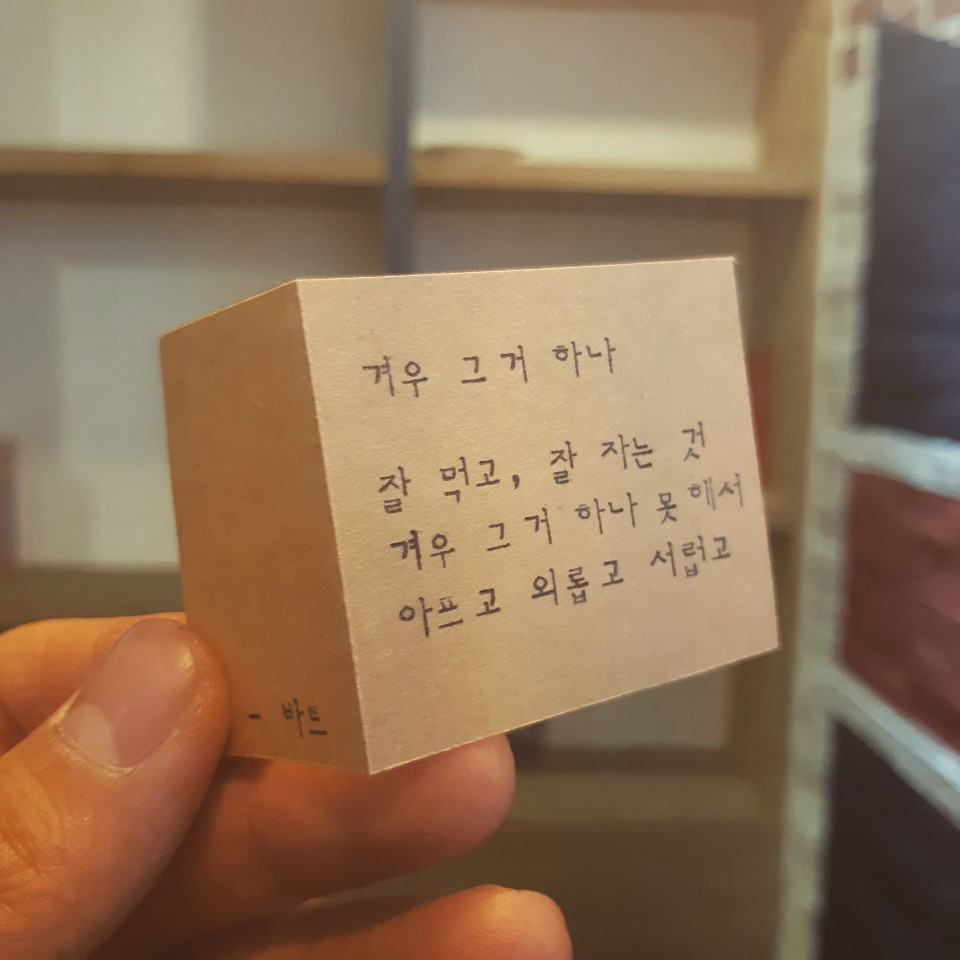 겨우 그거 하나
잘 먹고, 잘 자는 것
겨우 그거 하나 못해서
아프고 외롭고 서럽고
- 바트